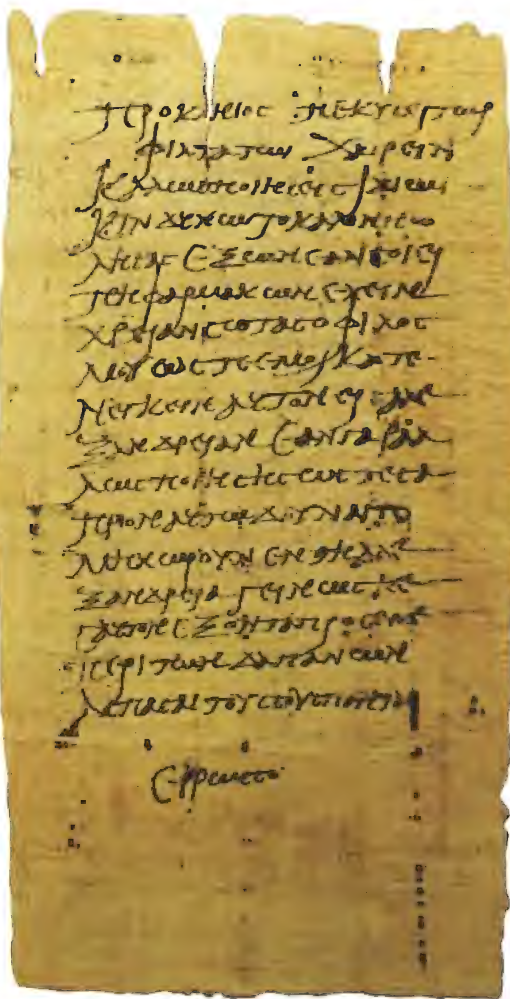 Προκλήιος Πεκύσει τωι
φιλτάτωι χαίρειν
καλως ποιησεις ιδιωι
κινδυνω το καλον πω
λησας εξ ων εαν σοι ει
πη φαρμακων εχειν
χρειαν Σωτας ο φιλος
μου ωστε εμοι κατε
νεγκειν αυτον εις Αλε
ξανδρειαν εαν γαρ αλ
λως ποιησης ωστε σα
προν αυτω δουναι το
μη χωρουν εν τη Αλε
ξανδρεια γεινωσκε
σαυτον εξοντα προς εμε
περι των δαπανων
ασπασαι τους σους παντας
ερρωσο